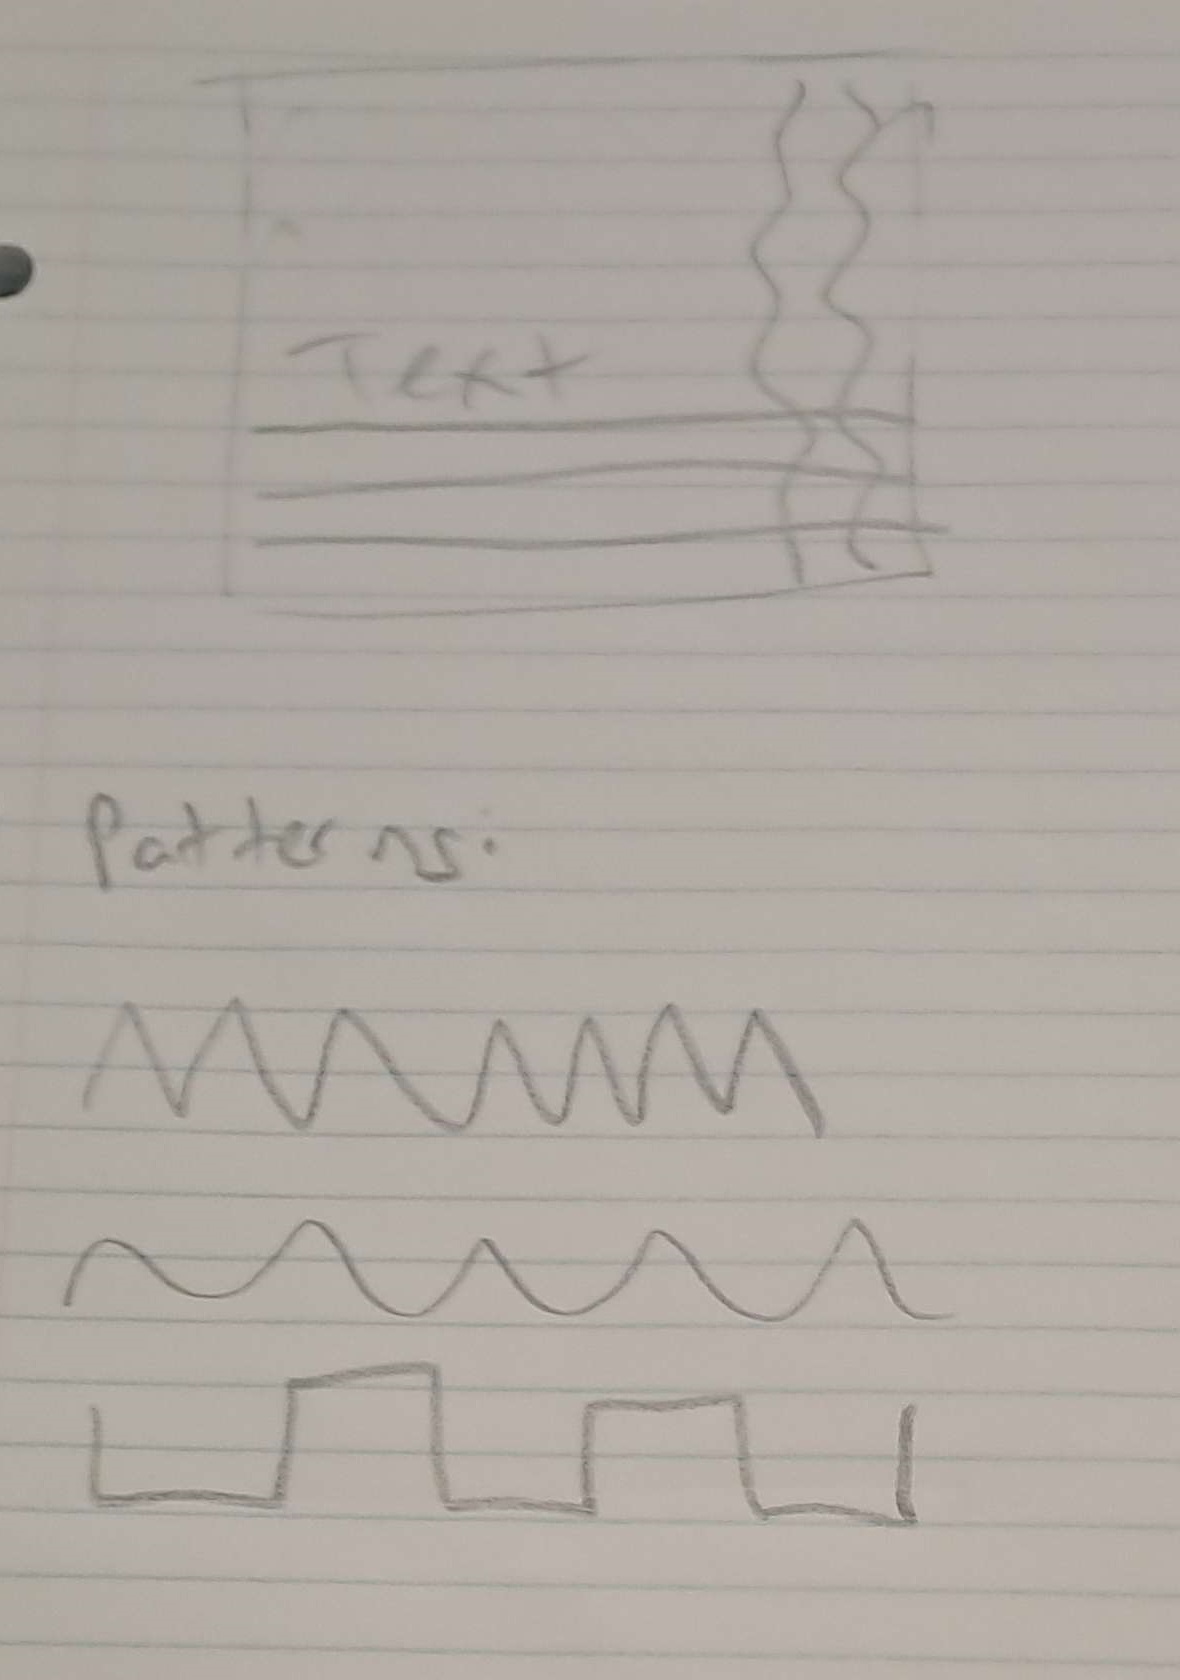 Text
Patterns: